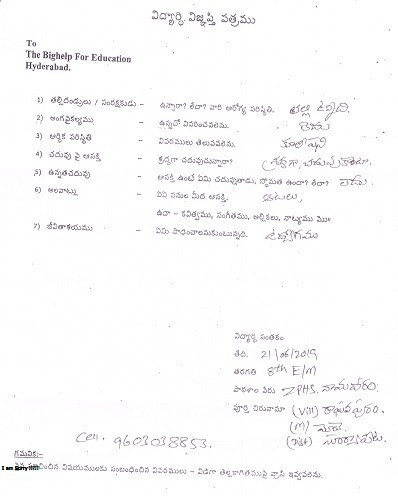 విద్యార్థి విజ్ఞప్తి పత్రము
To
The Bighelp For Education
Hyderabad.
1) తల్లిదండ్రులు / సంరక్షకుడు - ఉన్నారా? లేదా? వారి ఆరోగ్య పరిస్థితి. తల్లి ఉన్నది.
2) అంగవైకల్యము - ఉన్నచో వివరించవలెను. లేదు
3) ఆర్థిక పరిస్థితి - వివరములు తెలుపవలెను.
4) చదువు పై ఆసక్తి - శ్రద్ధగా చదువుచున్నారా?
5) ఉన్నతచదువు - ఆసక్తి ఉంటే ఏమి చదువుతాడు, స్తోమత ఉందా? లేదా?
6) అలవాట్లు - ఏఏ పనుల మీద ఆసక్తి. ఆటలు,
ఉదా - కవిత్వము, సంగీతము, అల్లికలు, నాట్యము మొ
7) జీవితాశయము - ఏమి సాధించాలనుకుంటున్నది. ఉద్యోగము
విద్యార్థి సంతకం
తేది. 21/06/2019
తరగతి 8th E/M
పాఠశాల పేరు ZPHS.
పూర్తి చిరునామా (Vill)
(M)
(Dst)
Cell. 9603038853.
గమనిక:-
పైన సూచించిన విషయములకు సంబంధించిన వివరములు - విడిగా తెల్లకాగితముపై వ్రాసి ఇవ్వవలెను.